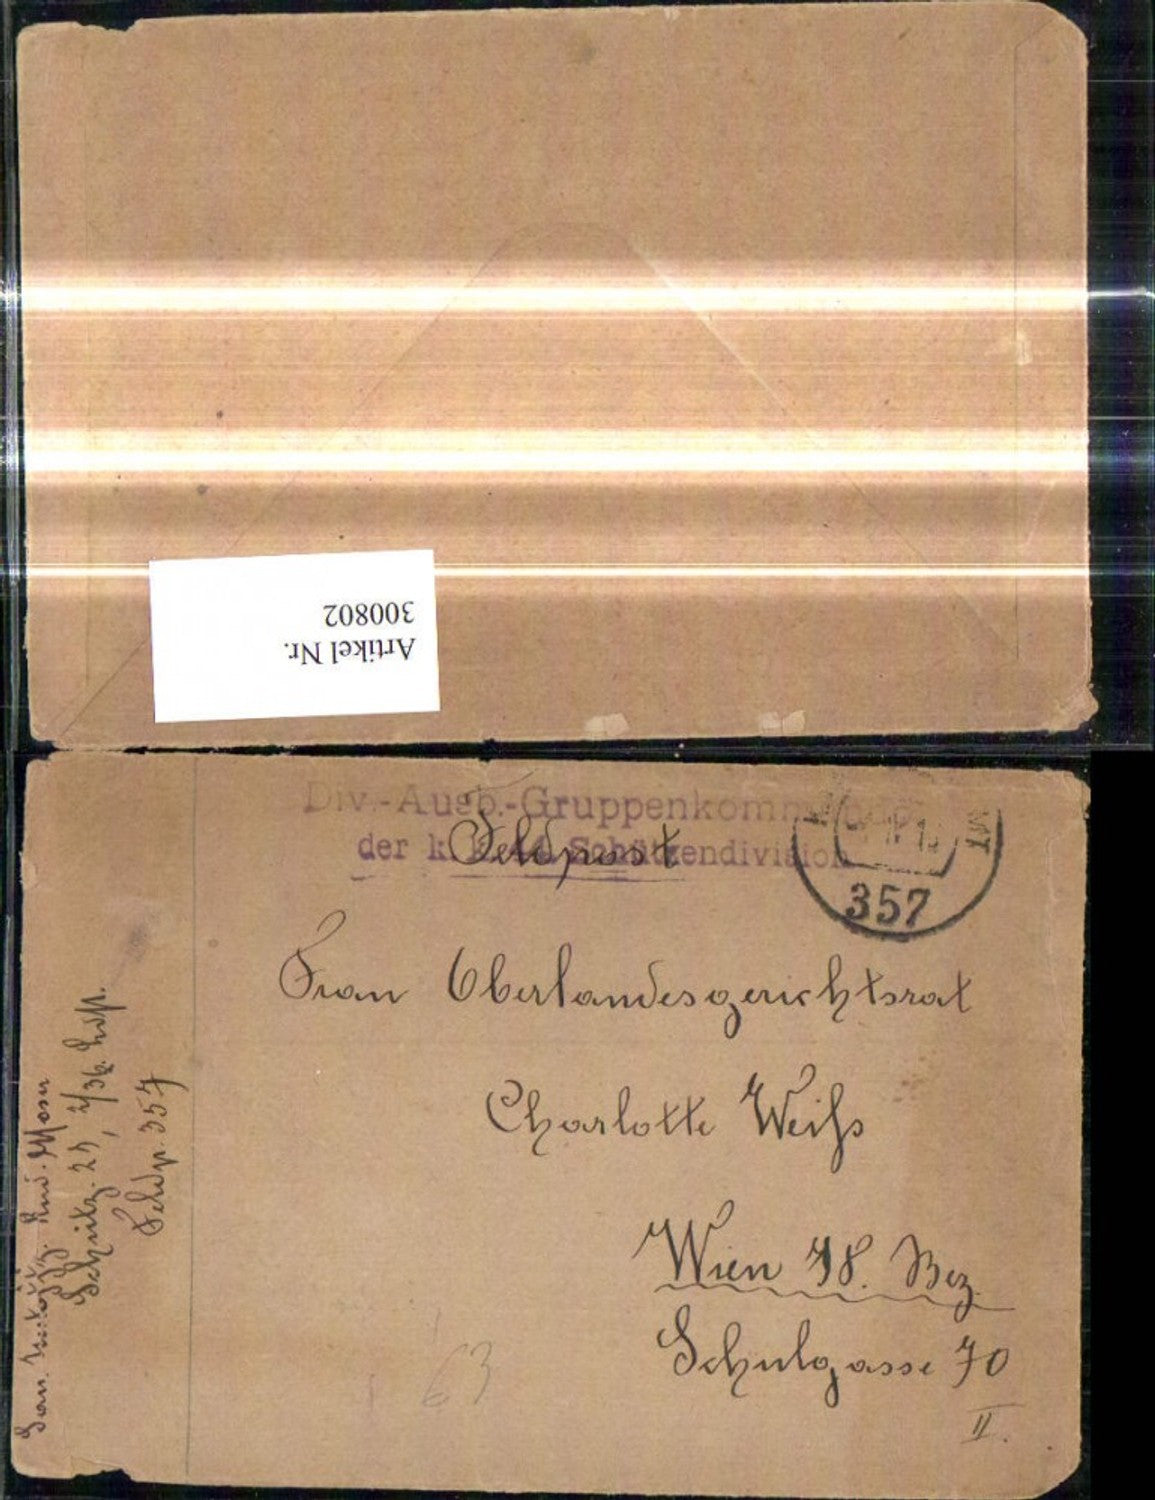 Artikel Nr.
300802
Div.-Ausb.-Gruppenkommando
der k. k. 44 Schützendivision
Feldpost
MT
357
Frau Oberlandesgerichtsrat
Charlotte Weiß
Wien 18. Bez.
Schulgasse 70
II.
63
San. Rud. Moser
Schütz. 25,
Feldp. 357